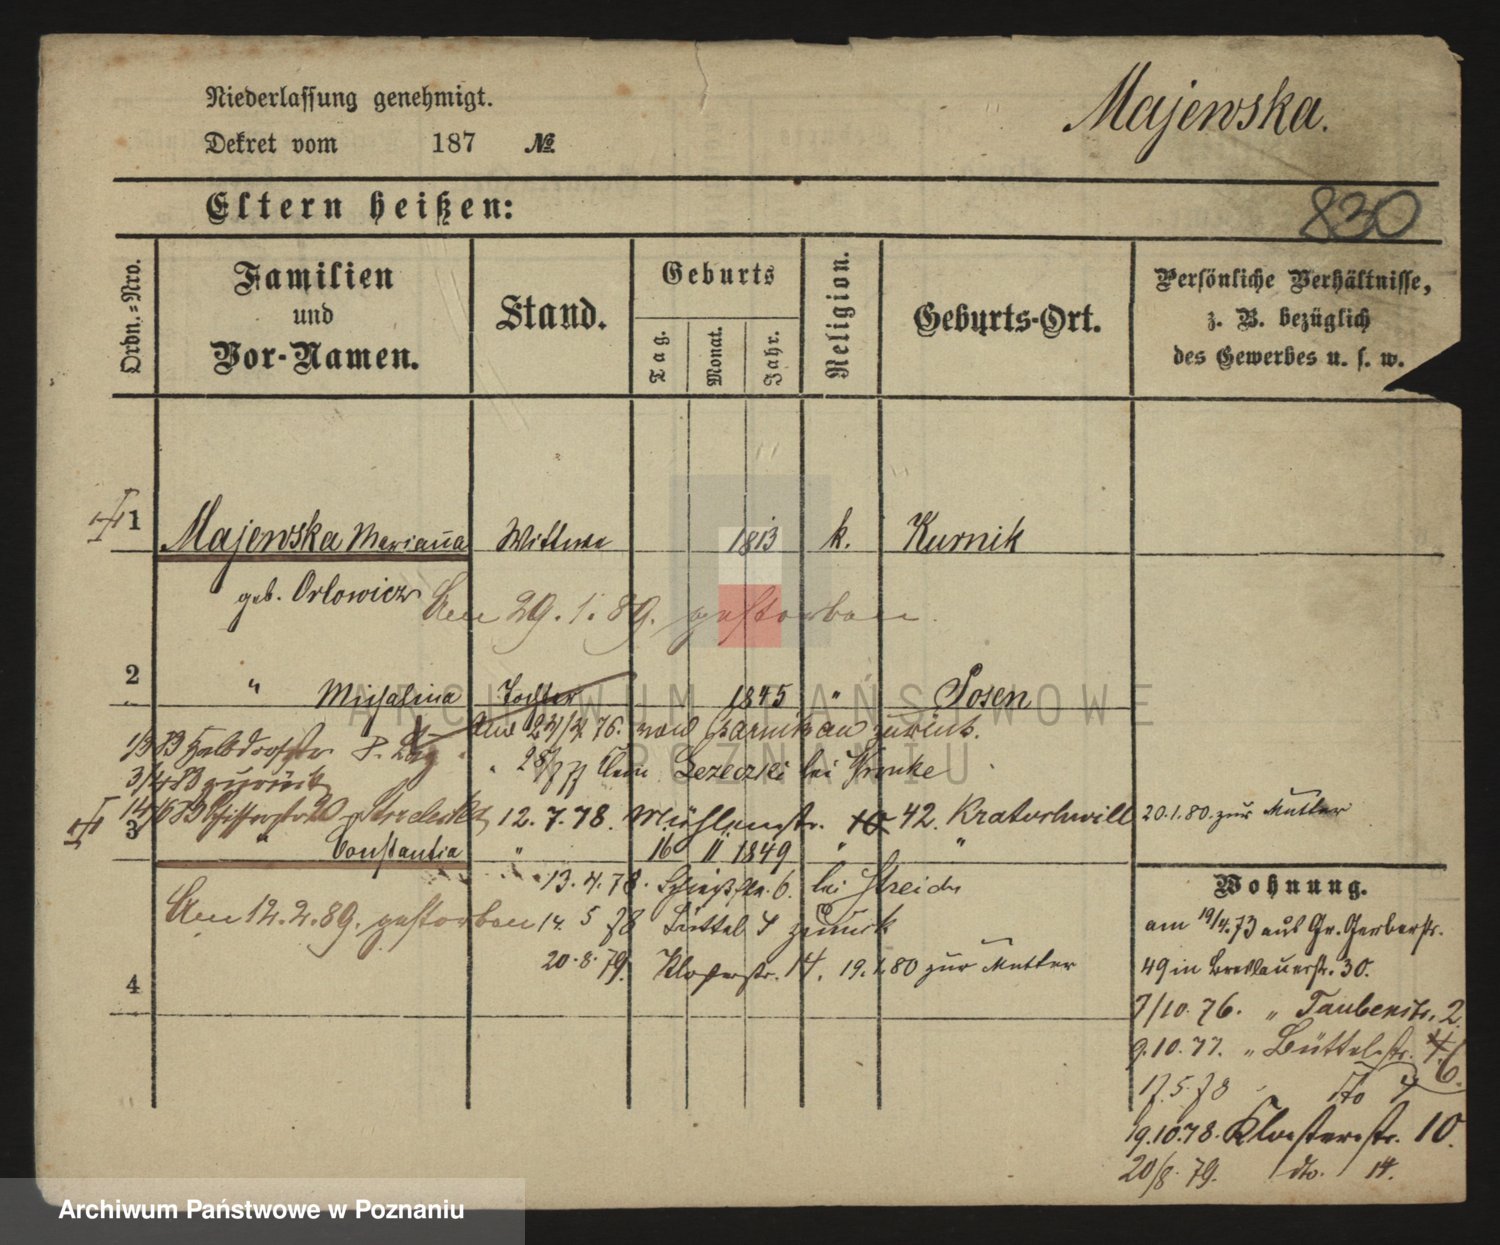 Niederlassung genehmigt.
Majewska.
Dekret vom 187 №
Eltern heißen:
830
Ordn.-Nro.
Familien
und
Vor-Namen.
Stand.
Geburts
Tag.
Monat.
Jahr.
Religion.
Geburts-Ort.
Persönliche Verhältnisse,
z. B. bezüglich
des Gewerbes u. s. w.
1 Majewska Marianna Wittwe 1813 k. Kurnik
geb. Orlowicz Am 29.1.89. gestorben.
2 " Michalina Tochter 1845 " Posen
ARCHIWUM PAŃSTWOWE
POZNANIU
Am 24/4 76. von Czarnikau zurück.
bei Krönke
3/4 83 zurück
12.7.78. Mühlenstr. 42. Kratochwill 20.1.80. zur Mutter
3 " Constantia " 16 11 1849 " "
13.4.78. 6. bei Streich
Am 12.2.89. gestorben 14. 5 78 Büttel 4 zurück
20.8.79. Klosterstr. 14. 19.1.80 zur Mutter
4
Wohnung.
am 19/4.73 aus Gr. Gerberstr.
49 in Breslauerstr. 30.
7/10.76. " Taubenstr. 2.
9.10.77. " Büttelstr. 4. 6.
17.5.78 " dto 4
19.10.78. Klosterstr. 10.
20/8.79. dto. 14.
Archiwum Państwowe w Poznaniu